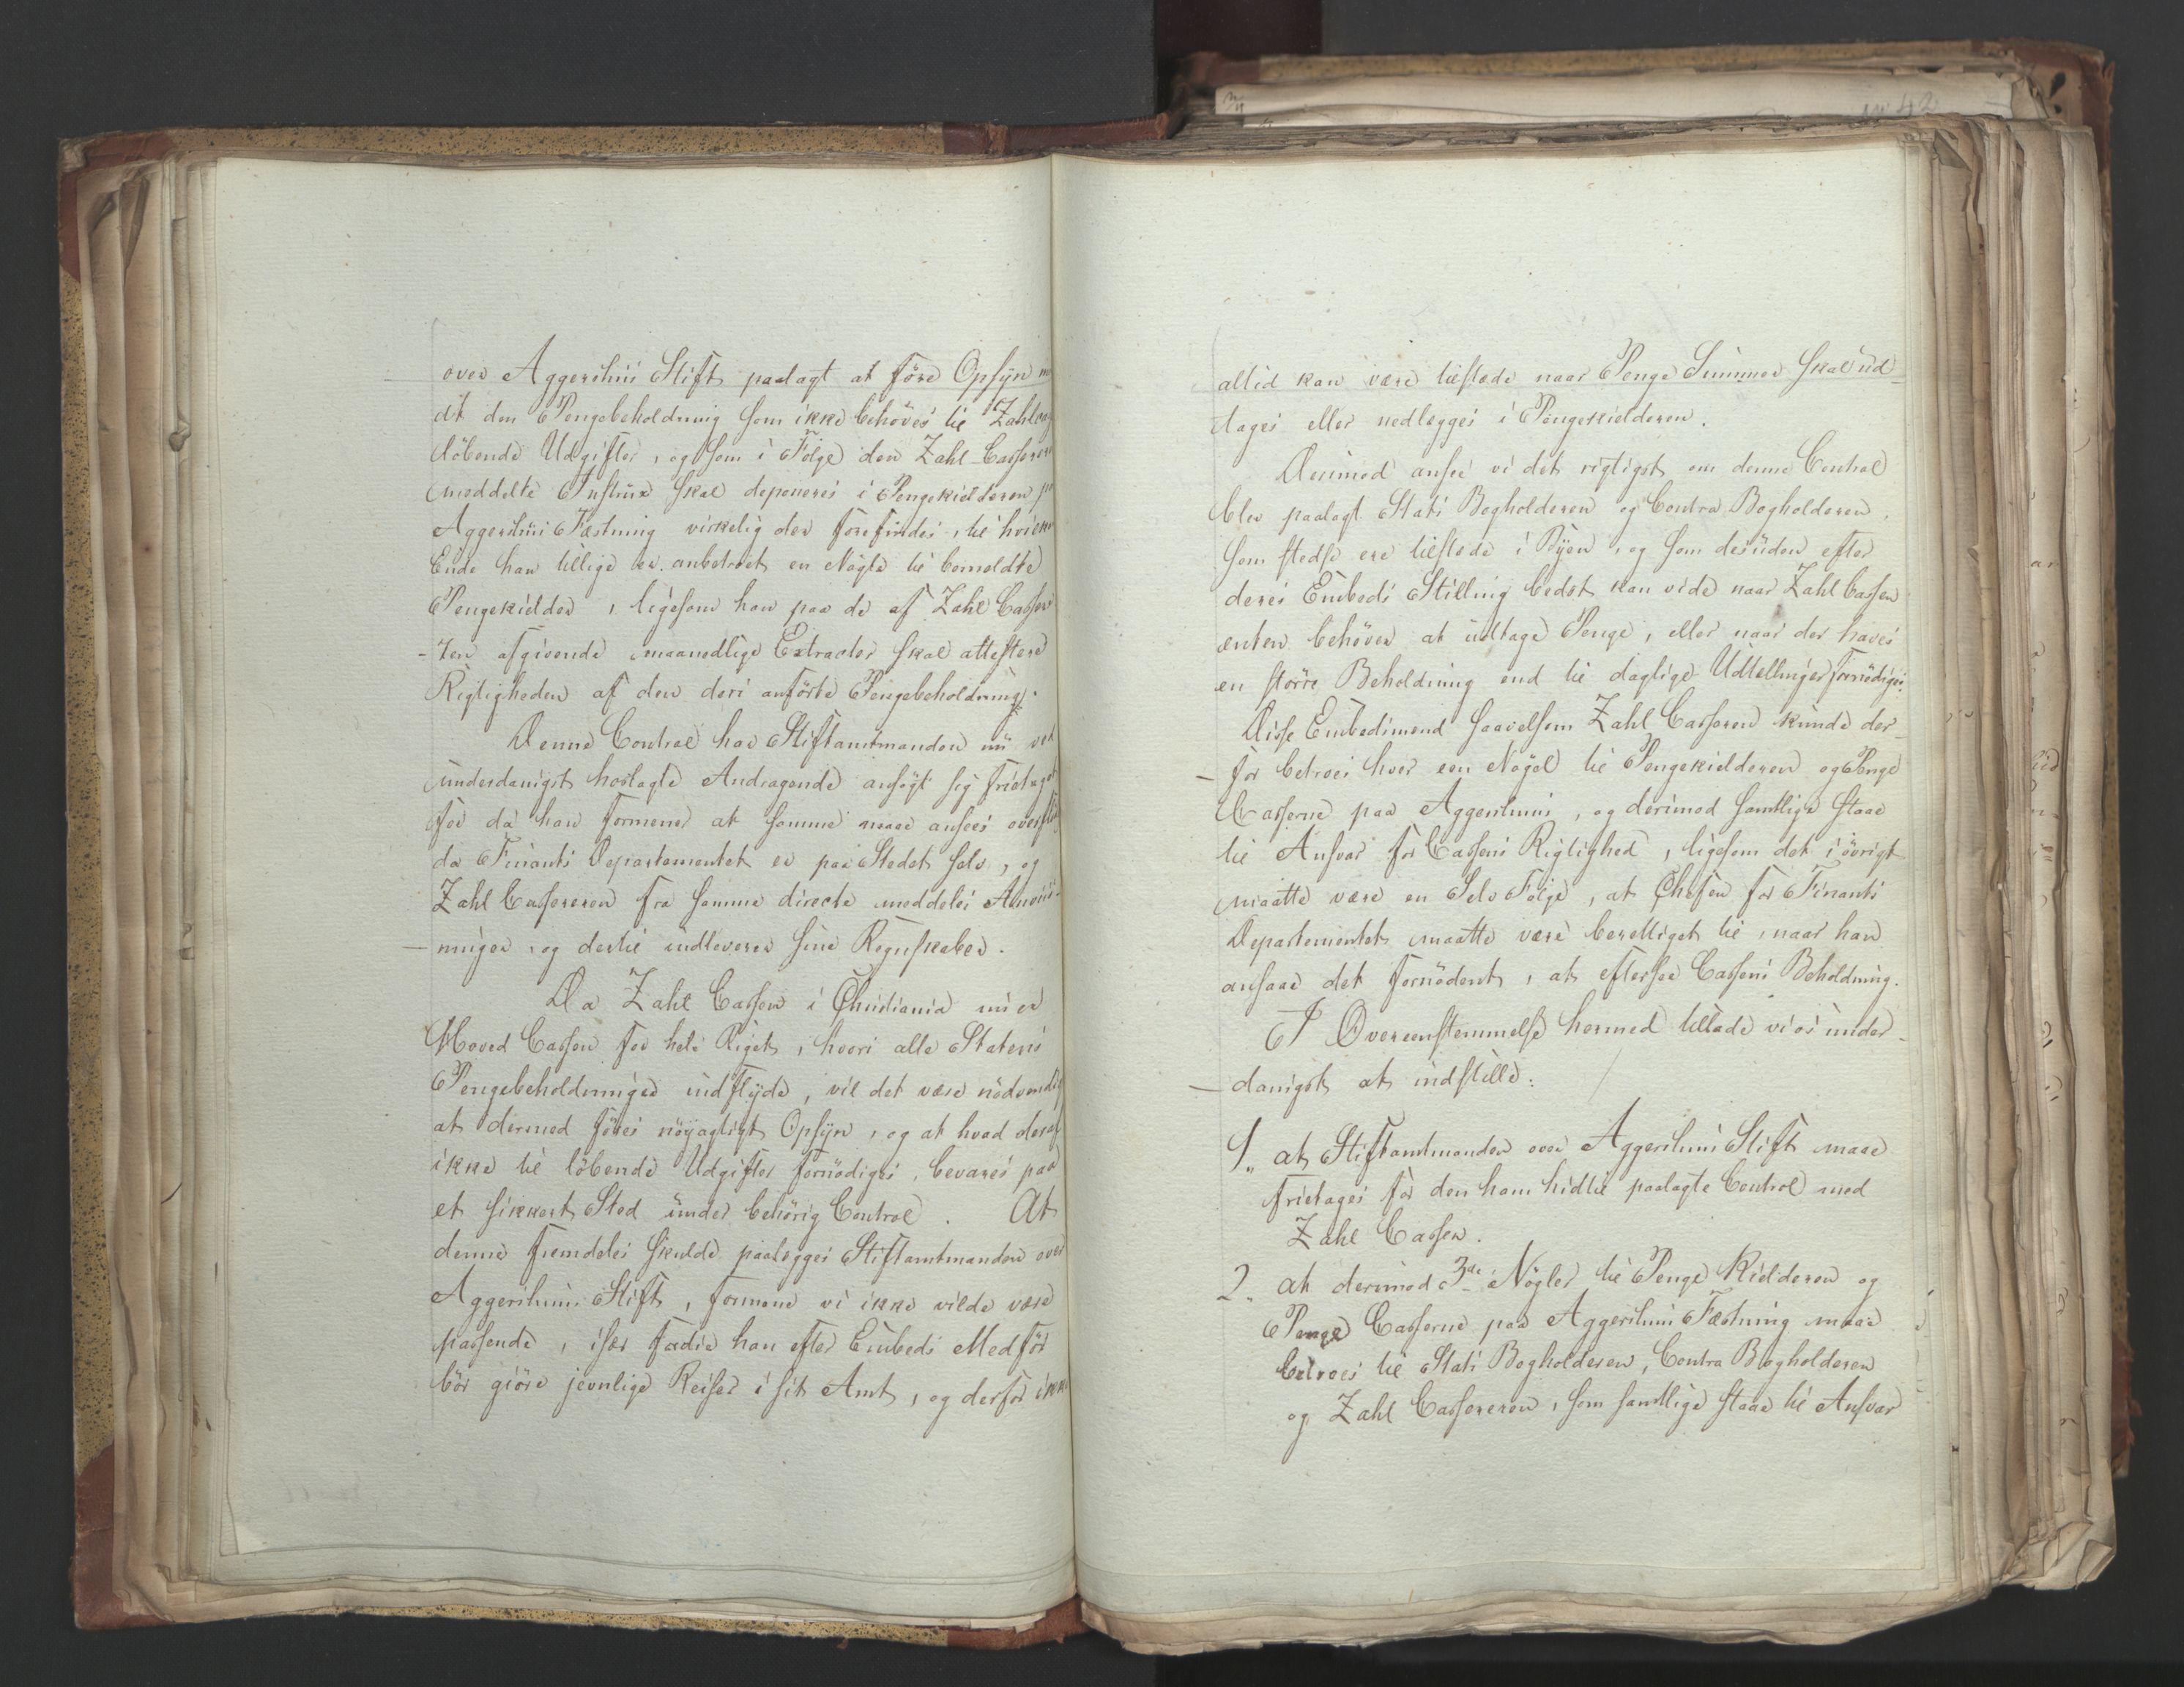 over Aggershuus Stift paalagt at före Opsyn
at den Pengebeholdning som ikke behöves til Zahlens
löbende Udgifter, og som i Fölge den Zahl-Casserer
meddelte Instrux skal deponeres i Pengekielderen
Aggershuus Fæstning virkelig der forefindes, til hvilken
Ende han tillige er anbetroet en Nögle til bemeldte
Pengekielder, ligesom han paa de af Zahl Casser
-ren afgivende maanedlige Extracter skal attestere
Rigtigheden af den deri anförte Pengebeholdning.
Denne Control har Stiftamtmanden nu ved
underdanigst hoslagte Andragende ansögt sig fritaget
for da han formener at samme maae ansees overflö
da Finants Departementet er paa Stedet selv, og
Zahl Cassereren fra samme directe meddeles Anviis-
ninger og dertil indleverer sine Regnskaber.
Da Zahl Cassen i Christiania nu er
Hoved Cassen for hele Riget, hvori alle Statens
Pengebeholdninger indflyde, vil det være nödvendig
at dermed föres nöyagtigt Opsyn, og at hvad deraf
ikke til löbende Udgifter fornödiges, bevares paa
et sikkert Sted under behörig Control. At
denne fremdeles skulde paalegges Stiftamtmanden over
Aggershuus Stift, formene vi ikke vilde være
passende, især fordie han efter Embeds Medför
bör giöre jevnlige Reiser i sit Amt, og derfor ikke
altid kan være tilstede naar Penge Summer skal ud-
tages eller nedlegges i Pengekielderen.
Derimod ansee vi det rigtigst om denne Control
blev paalagt Stats Bogholderen og Contra Bogholderen
som stedse ere tilstede i Byen, og som desuden efter
deres Embeds Stilling bedst kan vide naar Zahlcassen
enten behöver at udtage Penge, eller naar der haves
en större Beholdning end til daglige Udtellinger fornödiges.
Disse Embedsmend saavelsom Zahl Casseren kunde der-
for betroes hver een Nögel til Pengekielderen og Penge
Casserne paa Aggershuus, og derimod samtlige staae
til Ansvar for Cassens Rigtighed, ligesom det i övrigt
maatte være en Selv Fölge, at Chefen for Finants
Departementet maatte være berettiget til, naar han
ansaae det fornödent, at eftersee Cassens Beholdning.
I Overeenstemmelse hermed tillade vi os under-
danigst at indstille:
1. at Stiftamtmanden over Aggershuus Stift maae
fritages for den ham hidtil paalagte Control med
Zahl Cassen.
2. at derimod 3de Nögler til Penge Kielderen og
Penge Casserne paa Aggershuus Fæstning maae
betroes til Stats Bogholderen, Contra Bogholderen
og Zahl Cassereren, som samtlige staae til Ansvar